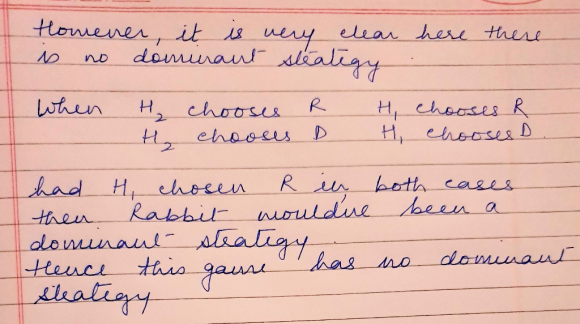 However, it is very clear here there
is no dominant strategy
When H₂ chooses R H₁ chooses R
H₂ chooses D H₁ chooses D.
had H₁ chosen R in both cases
then Rabbit wouldve been a
dominant strategy.
Hence this game has no dominant
strategy